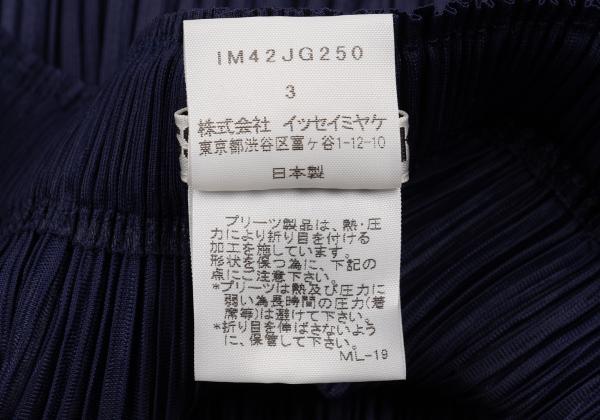 IM42JG250
3
株式会社 イッセイミヤケ
東京都渋谷区富ヶ谷1-12-10
日本製
プリーツ製品は、熱・圧
力により折り目を付ける
加工を施しています。
形状を保つ為に、下記の
点にご注意下さい。
*プリーツは熱及び圧力に
弱い為長時間の圧力(着
席等)は避けて下さい。
*折り目を伸ばさないよう
に、保管して下さい。
ML-19